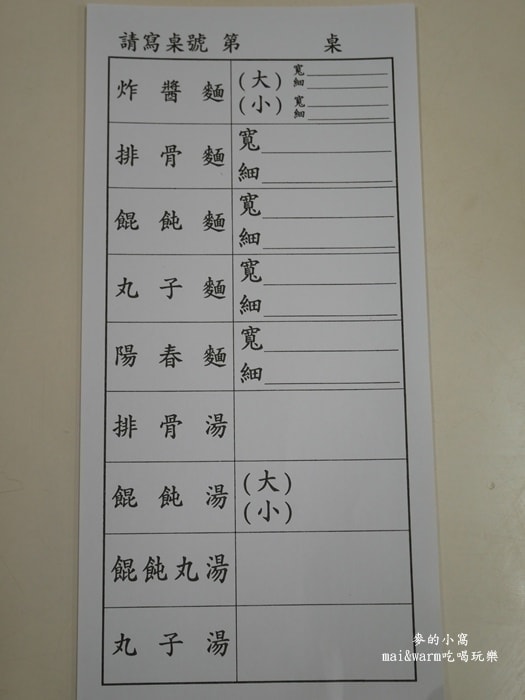 請寫桌號 第 桌
炸醬麵 (大) 寬 細
(小) 寬 細
排骨麵 寬
細
餛飩麵 寬
細
丸子麵 寬
細
陽春麵 寬
細
排骨湯
餛飩湯 (大)
(小)
餛飩丸湯
丸子湯
麥的小窩
mai&warm吃喝玩樂